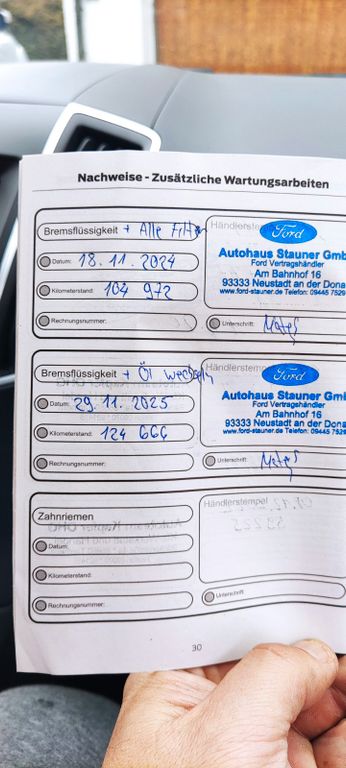 Nachweise - Zusätzliche Wartungsarbeiten
Bremsflüssigkeit + Alle Filter
Händlerstempel
Ford
Autohaus Stauner Gmb
Ford Vertragshändler
Am Bahnhof 16
93333 Neustadt an der Dona
www.ford-stauner.de Telefon: 09445 7529
Datum: 18.11.2024
Kilometerstand: 104 972
Rechnungsnummer:
Unterschrift:
Bremsflüssigkeit + Öl wechseln
Händlerstempel
Ford
Autohaus Stauner Gmb
Ford Vertragshändler
Am Bahnhof 16
93333 Neustadt an der Dona
www.ford-stauner.de Telefon: 09445 7529
Datum: 29.11.2025
Kilometerstand: 124 666
Rechnungsnummer:
Unterschrift:
Zahnriemen
Händlerstempel
Datum:
Kilometerstand:
Rechnungsnummer:
Unterschrift:
30